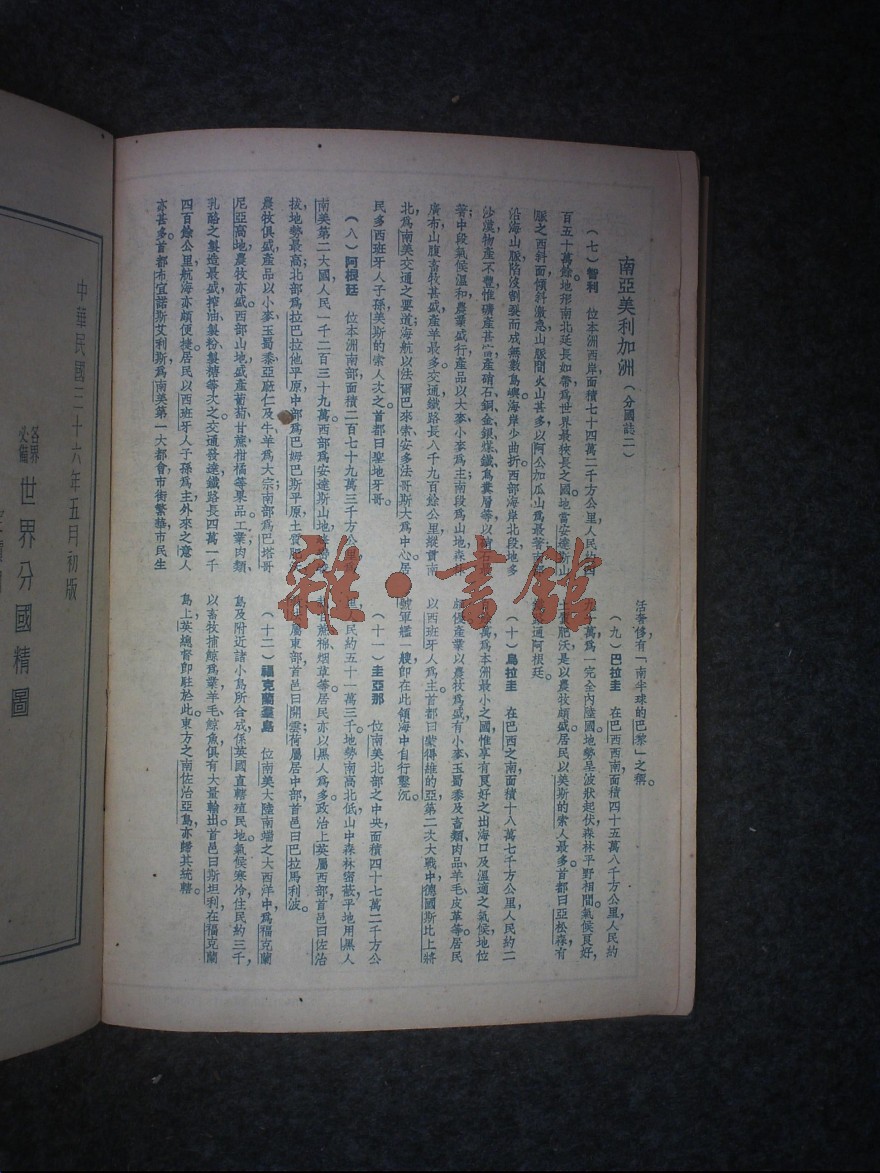 南亞美利加洲（分國誌二）
（七）智利　位本洲西岸面積七十四萬二千方公里，人民共四
百五十萬餘地形南北延長如帶爲世界最狹長之國地當安達斯山
脈之西斜面，傾斜激急，山脈間火山甚多，以阿公加瓜山爲最著，南
沿海山脈陷沒割裂而成無數島嶼，海岸少曲折，西部海岸北段地多
沙漠，物產不豐，惟礦產甚富，產硝石銅金銀煤鐵鳥糞層等，以
著；中段氣候溫和，農業盛行，產品以大麥小麥爲主；南段爲山地，森林
廣布，山腹畜牧甚盛，產羊最多。交通鐵路長八千九百餘公里，縱貫南
北，爲南美交通之要道；海航以法爾巴來索安多法哥斯大爲中心。居
民多西班牙人子孫，美斯的索人次之。首都曰聖地牙哥。
（八）阿根廷　位本洲南部，面積二百七十九萬三千方公里，
南美第二大國，人民一千二百三十九萬。西部爲安達斯山地，
拔地勢最高，北部爲拉巴拉他平原，中部爲巴姆巴斯平原，土質肥沃，
農牧俱盛，產品以小麥玉蜀黍亞麻仁及牛羊爲大宗；南部爲巴塔哥
尼亞高地，農牧亦盛；西部山地盛產葡萄甘蔗柑橘等果品。工業肉類、
乳酪之製造最盛，搾油製粉製糖等次之。交通發達，鐵路長四萬一千
四百餘公里，航海亦頗便捷。居民以西班牙人子孫爲主，外來之意人
亦甚多。首都布宜諾斯艾利斯，爲南美第一大都會，市街繁華，市民生
活奢侈，有「南半球的巴黎」之稱。
（九）巴拉圭　在巴西西南，面積四十五萬八千方公里，人民約
萬，爲一完全內陸國。地勢呈波狀起伏，森林平野相間，氣候良好，
土質肥沃，是以農牧頗盛。居民以美斯的索人最多。首都曰亞松森，有
通阿根廷。
（十）烏拉圭　在巴西之南，面積十八萬七千方公里，人民約二
萬，爲本洲最小之國，惟享有良好之出海口及溫適之氣候，地位
頗優。產業以農牧爲盛，有小麥玉蜀黍及畜類肉品羊毛皮革等。居民
以西班牙人爲主。首都曰蒙得維的亞，第二次大戰中，德國斯比上將
號軍艦一艘，即在此領海中自行鑿沉。
（十一）圭亞那　位南美北部之中央，面積四十七萬二千方公
里，人民約五十一萬三千。地勢南高北低，山中森林密蔽，平地用黑人
蔗棉烟草等。居民亦以黑人爲多。政治上英屬西部，首邑曰佐治
屬東部，首邑曰開雲；荷屬居中部，首邑曰巴拉馬利波。
（十二）福克蘭羣島　位南美大陸南端之大西洋中，爲福克蘭
島及附近諸小島所合成，係英國直轄殖民地。氣候寒冷，住民約三千，
以畜牧捕鯨爲業，羊毛鯨魚俱有大量輸出。首邑曰斯坦利，在福克蘭
島上，英總督即駐於此，東方之南佐治亞島亦歸其統轄。
中華民國三十六年五月初版
各界必備
世界分國精圖
雜·書館